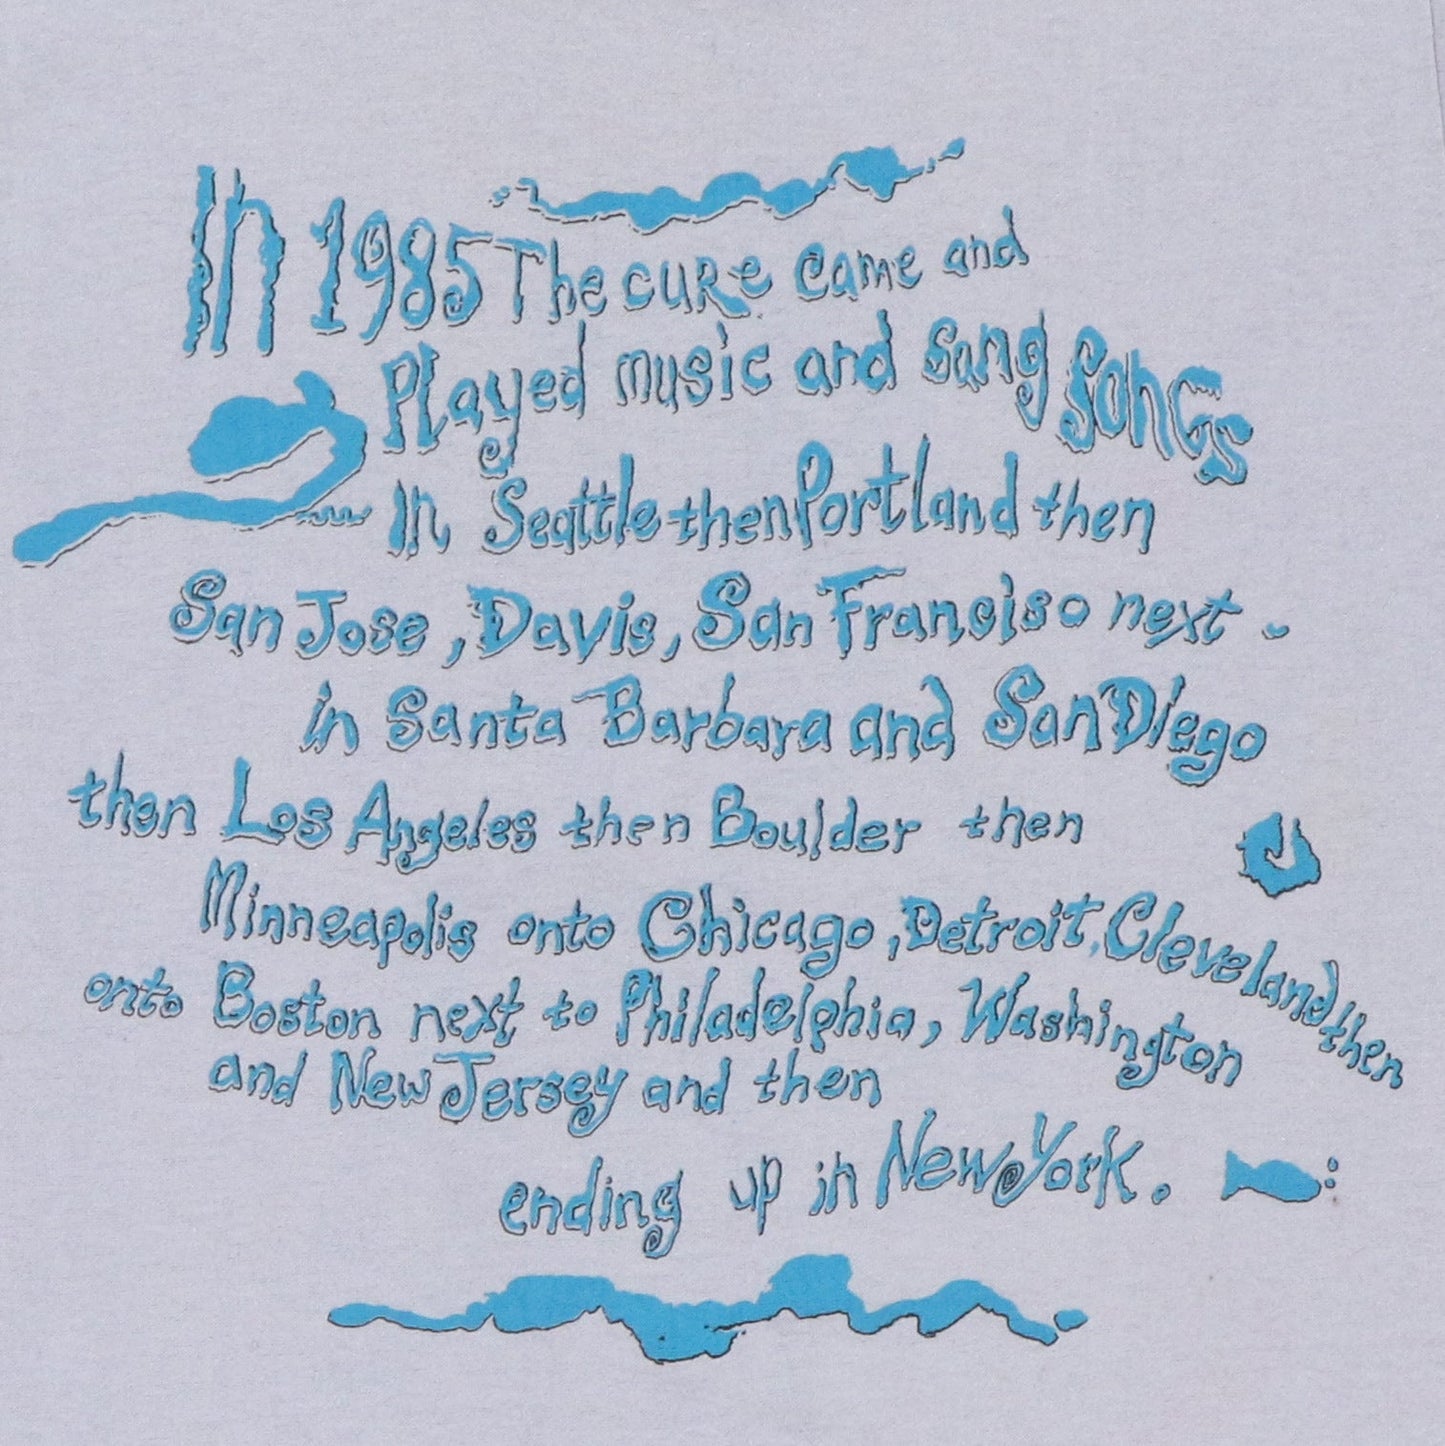 In 1985 The cure came and
Played music and sang songs
In Seattle then Portland then
San Jose, Davis, San Fransiso next -
in Santa Barbara and San Diego
then Los Angeles then Boulder then
Minneapolis onto Chicago, Detroit, Cleveland then
onto Boston next to Philadelphia, Washington
and New Jersey and then
ending up in New York.